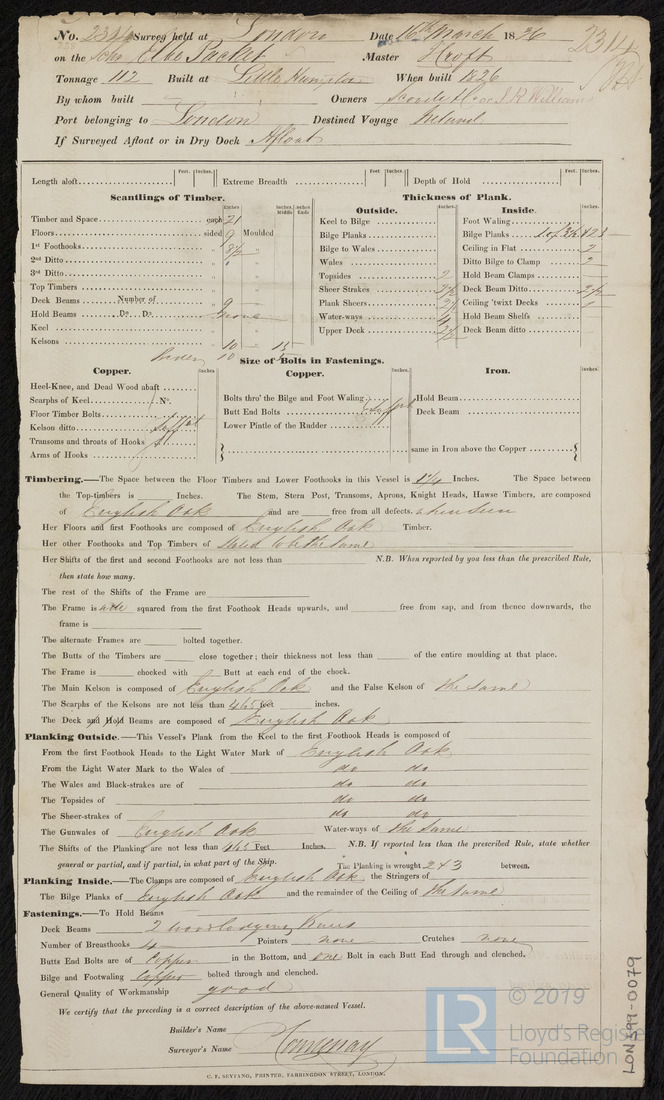 No. Survey held at London Date 16th March 1836 2314
on the Schr Elbe Packet Master Croft
Tonnage 112 Built at Little Hampton When built 1826
By whom built Owners J R Williams
Port belonging to London Destined Voyage Ireland
If Surveyed Afloat or in Dry Dock Afloat
Feet. Inches. Feet Inches. Feet. Inches.
Length aloft Extreme Breadth Depth of Hold
Scantlings of Timber.
Inches Inches. Middle Inches Ends
Timber and Space each 21
Floors sided 9 Moulded
1st Foothooks „ 8½
2nd Ditto „
3rd Ditto „
Top Timbers „
Deck Beams Number of „ 9
Hold Beams Do. Do. „ none
Keel „
Kelsons „ 10 15
10
Thickness of Plank.
Outside. Inches.
Keel to Bilge
Bilge Planks
Bilge to Wales
Wales
Topsides 2
Sheer Strakes 2½
Plank Sheers 2½
Water-ways 4
Upper Deck 2½
Inside. Inches.
Foot Waling
Bilge Planks 1 of 3½ & 2 3
Ceiling in Flat 2
Ditto Bilge to Clamp 2
Hold Beam Clamps
Deck Beam Ditto 2½
Ceiling 'twixt Decks 1
Hold Beam Shelfs
Deck Beam ditto
Size of Bolts in Fastenings.
Copper. Inches
Heel-Knee, and Dead Wood abaft
Scarphs of Keel No.
Floor Timber Bolts
Kelson ditto
Transoms and throats of Hooks
Arms of Hooks
Copper. Inches.
Bolts thro' the Bilge and Foot Waling
Butt End Bolts
Lower Pintle of the Rudder
Iron. Inches.
Hold Beam
Deck Beam
same in Iron above the Copper
Timbering.—The Space between the Floor Timbers and Lower Foothooks in this Vessel is Inches. The Space between
the Top-timbers is Inches. The Stem, Stern Post, Transoms, Aprons, Knight Heads, Hawse Timbers, are composed
of English Oak and are free from all defects. when seen
Her Floors and first Foothooks are composed of English Oak Timber.
Her other Foothooks and Top Timbers of Stated to be the same
Her Shifts of the first and second Foothooks are not less than N.B. When reported by you less than the prescribed Rule,
then state how many.
The rest of the Shifts of the Frame are
The Frame is squared from the first Foothook Heads upwards, and free from sap, and from thence downwards, the
frame is
The alternate Frames are bolted together.
The Butts of the Timbers are close together; their thickness not less than of the entire moulding at that place.
The Frame is chocked with Butt at each end of the chock.
The Main Kelson is composed of English Oak and the False Kelson of the same
The Scarphs of the Kelsons are not less than 4&5 feet inches.
The Deck and Hold Beams are composed of English Oak
Planking Outside.—This Vessel's Plank from the Keel to the first Foothook Heads is composed of
From the first Foothook Heads to the Light Water Mark of English Oak
From the Light Water Mark to the Wales of do do
The Wales and Black-strakes are of do do
The Topsides of do do
The Sheer-strakes of do do
The Gunwales of English Oak Water-ways of the same
The Shifts of the Planking are not less than 4&5 Feet Inches. N.B. If reported less than the prescribed Rule, state whether
general or partial, and if partial, in what part of the Ship. The Planking is wrought 2 & 3 between.
Planking Inside.—The Clamps are composed of English Oak the Stringers of
The Bilge Planks of English Oak and the remainder of the Ceiling of the same
Fastenings.—To Hold Beams
Deck Beams 2 wood lodging Knees
Number of Breasthooks 4 Pointers none Crutches none
Butts End Bolts are of Copper in the Bottom, and one Bolt in each Butt End through and clenched.
Bilge and Footwaling Copper bolted through and clenched.
General Quality of Workmanship good
We certify that the preceding is a correct description of the above-named Vessel.
Builder's Name
Surveyor's Name Courtenay
C. F. SEYFANG, PRINTER, FARRINGDON STREET, LONDON.
LR © 2019
Lloyd's Register
Foundation
LON 599-0079